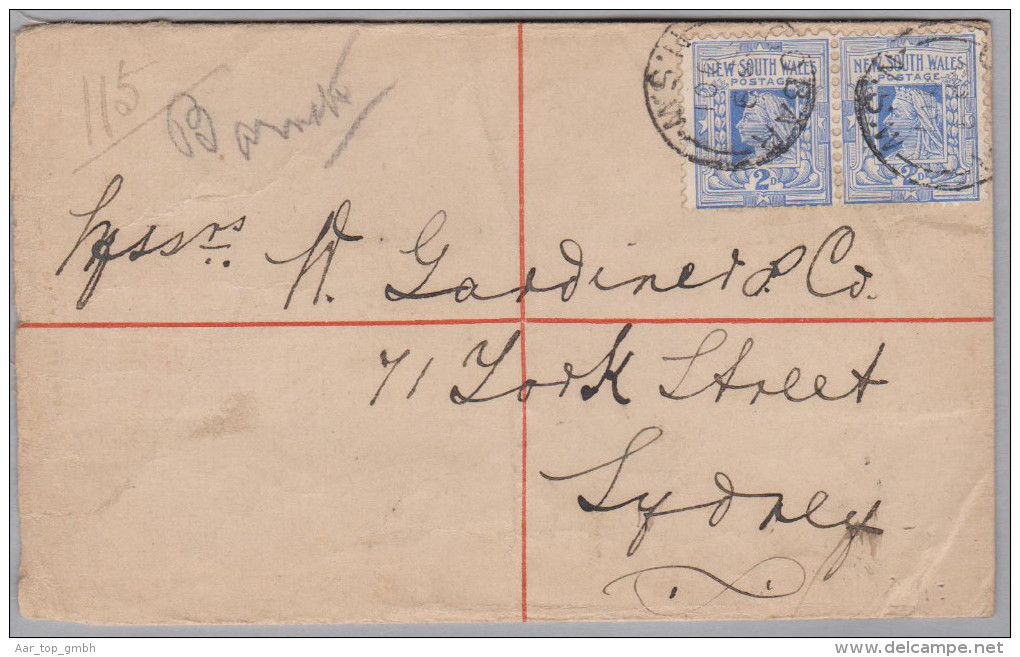 115
NEW SOUTH WALES
POSTAGE
2D
NEW SOUTH WALES
POSTAGE
2D
N.S.W.
N.S.W.
Messrs W. Gardiner & Co.
71 York Street
Sydney
Aar_top_gmbh
www.delcampe.net